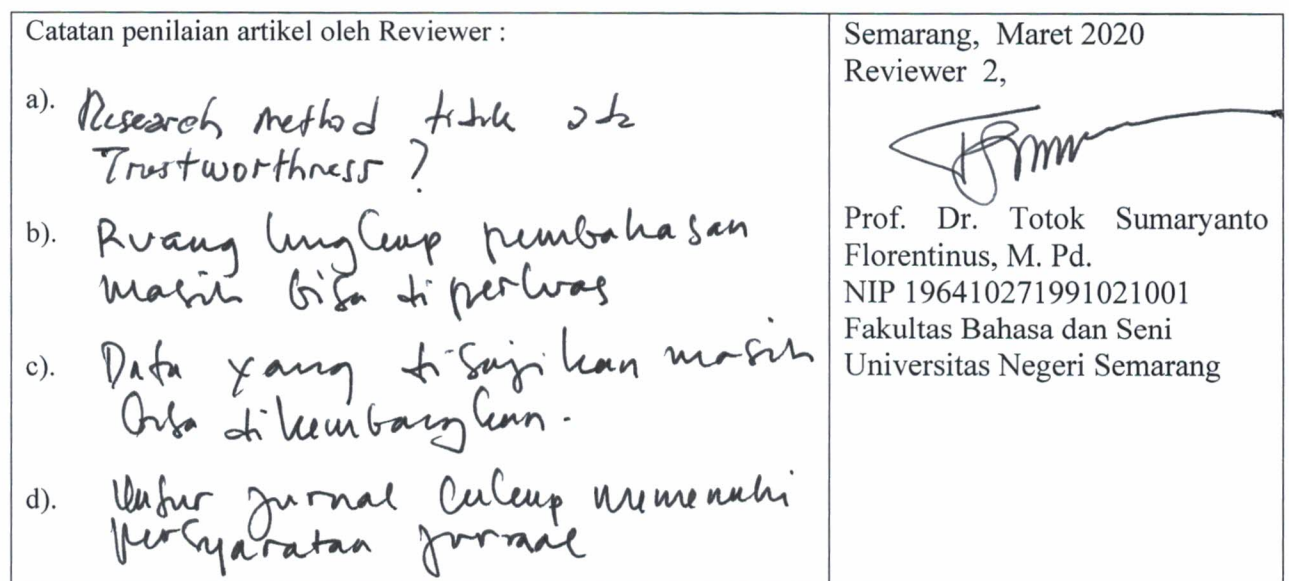 Catatan penilaian artikel oleh Reviewer :
a). Research method tidak ada
Trustworthness ?
b). Ruang lingkup pembahasan
masih bisa diperluas
c). Data yang disajikan masih
bisa dikembangkan.
d). Unsur jurnal cukup memenuhi
persyaratan jurnal
Semarang, Maret 2020
Reviewer 2,
Prof. Dr. Totok Sumaryanto
Florentinus, M. Pd.
NIP 196410271991021001
Fakultas Bahasa dan Seni
Universitas Negeri Semarang